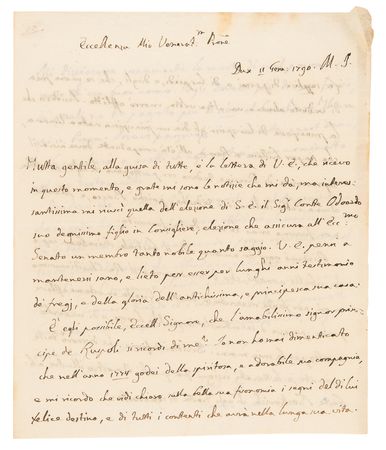 Eccellenza Mio Venerat.mo Prone
Dux 11 Gen. 1790. M. S.
Tutta gentile, alla guisa di tutte, è la lettera di V. E., che ricevo
in questo momento, e grate mi sono le notizie che mi dà, ma interes-
santissima mi riuscì quella dell'elezione di S. E. il Sig.r Conte Odoardo
suo degnissimo figlio in Consigliere, elezione che assicura all'Ecc.mo
Senato un membro tanto nobile quanto saggio. V. E. pensi a
mantenersi sano, e lieto per esser per lunghi anni testimonio
de' fregj, e della gloria dell'antichissima, e principesca sua casa.
È egli possibile, Eccell. Signore, che l'amabilissimo signor prin-
cipe de Ruspoli si ricordi di me? Io non ho mai dimenticato
che nell'anno 1774 godei della spiritosa, e adorabile sua compagnia,
e mi ricordo che vidi chiaro sulla bella sua fisonomia i segni del di lui
felice destino, e di tutti i contenti che avrà nella lunga sua vita.